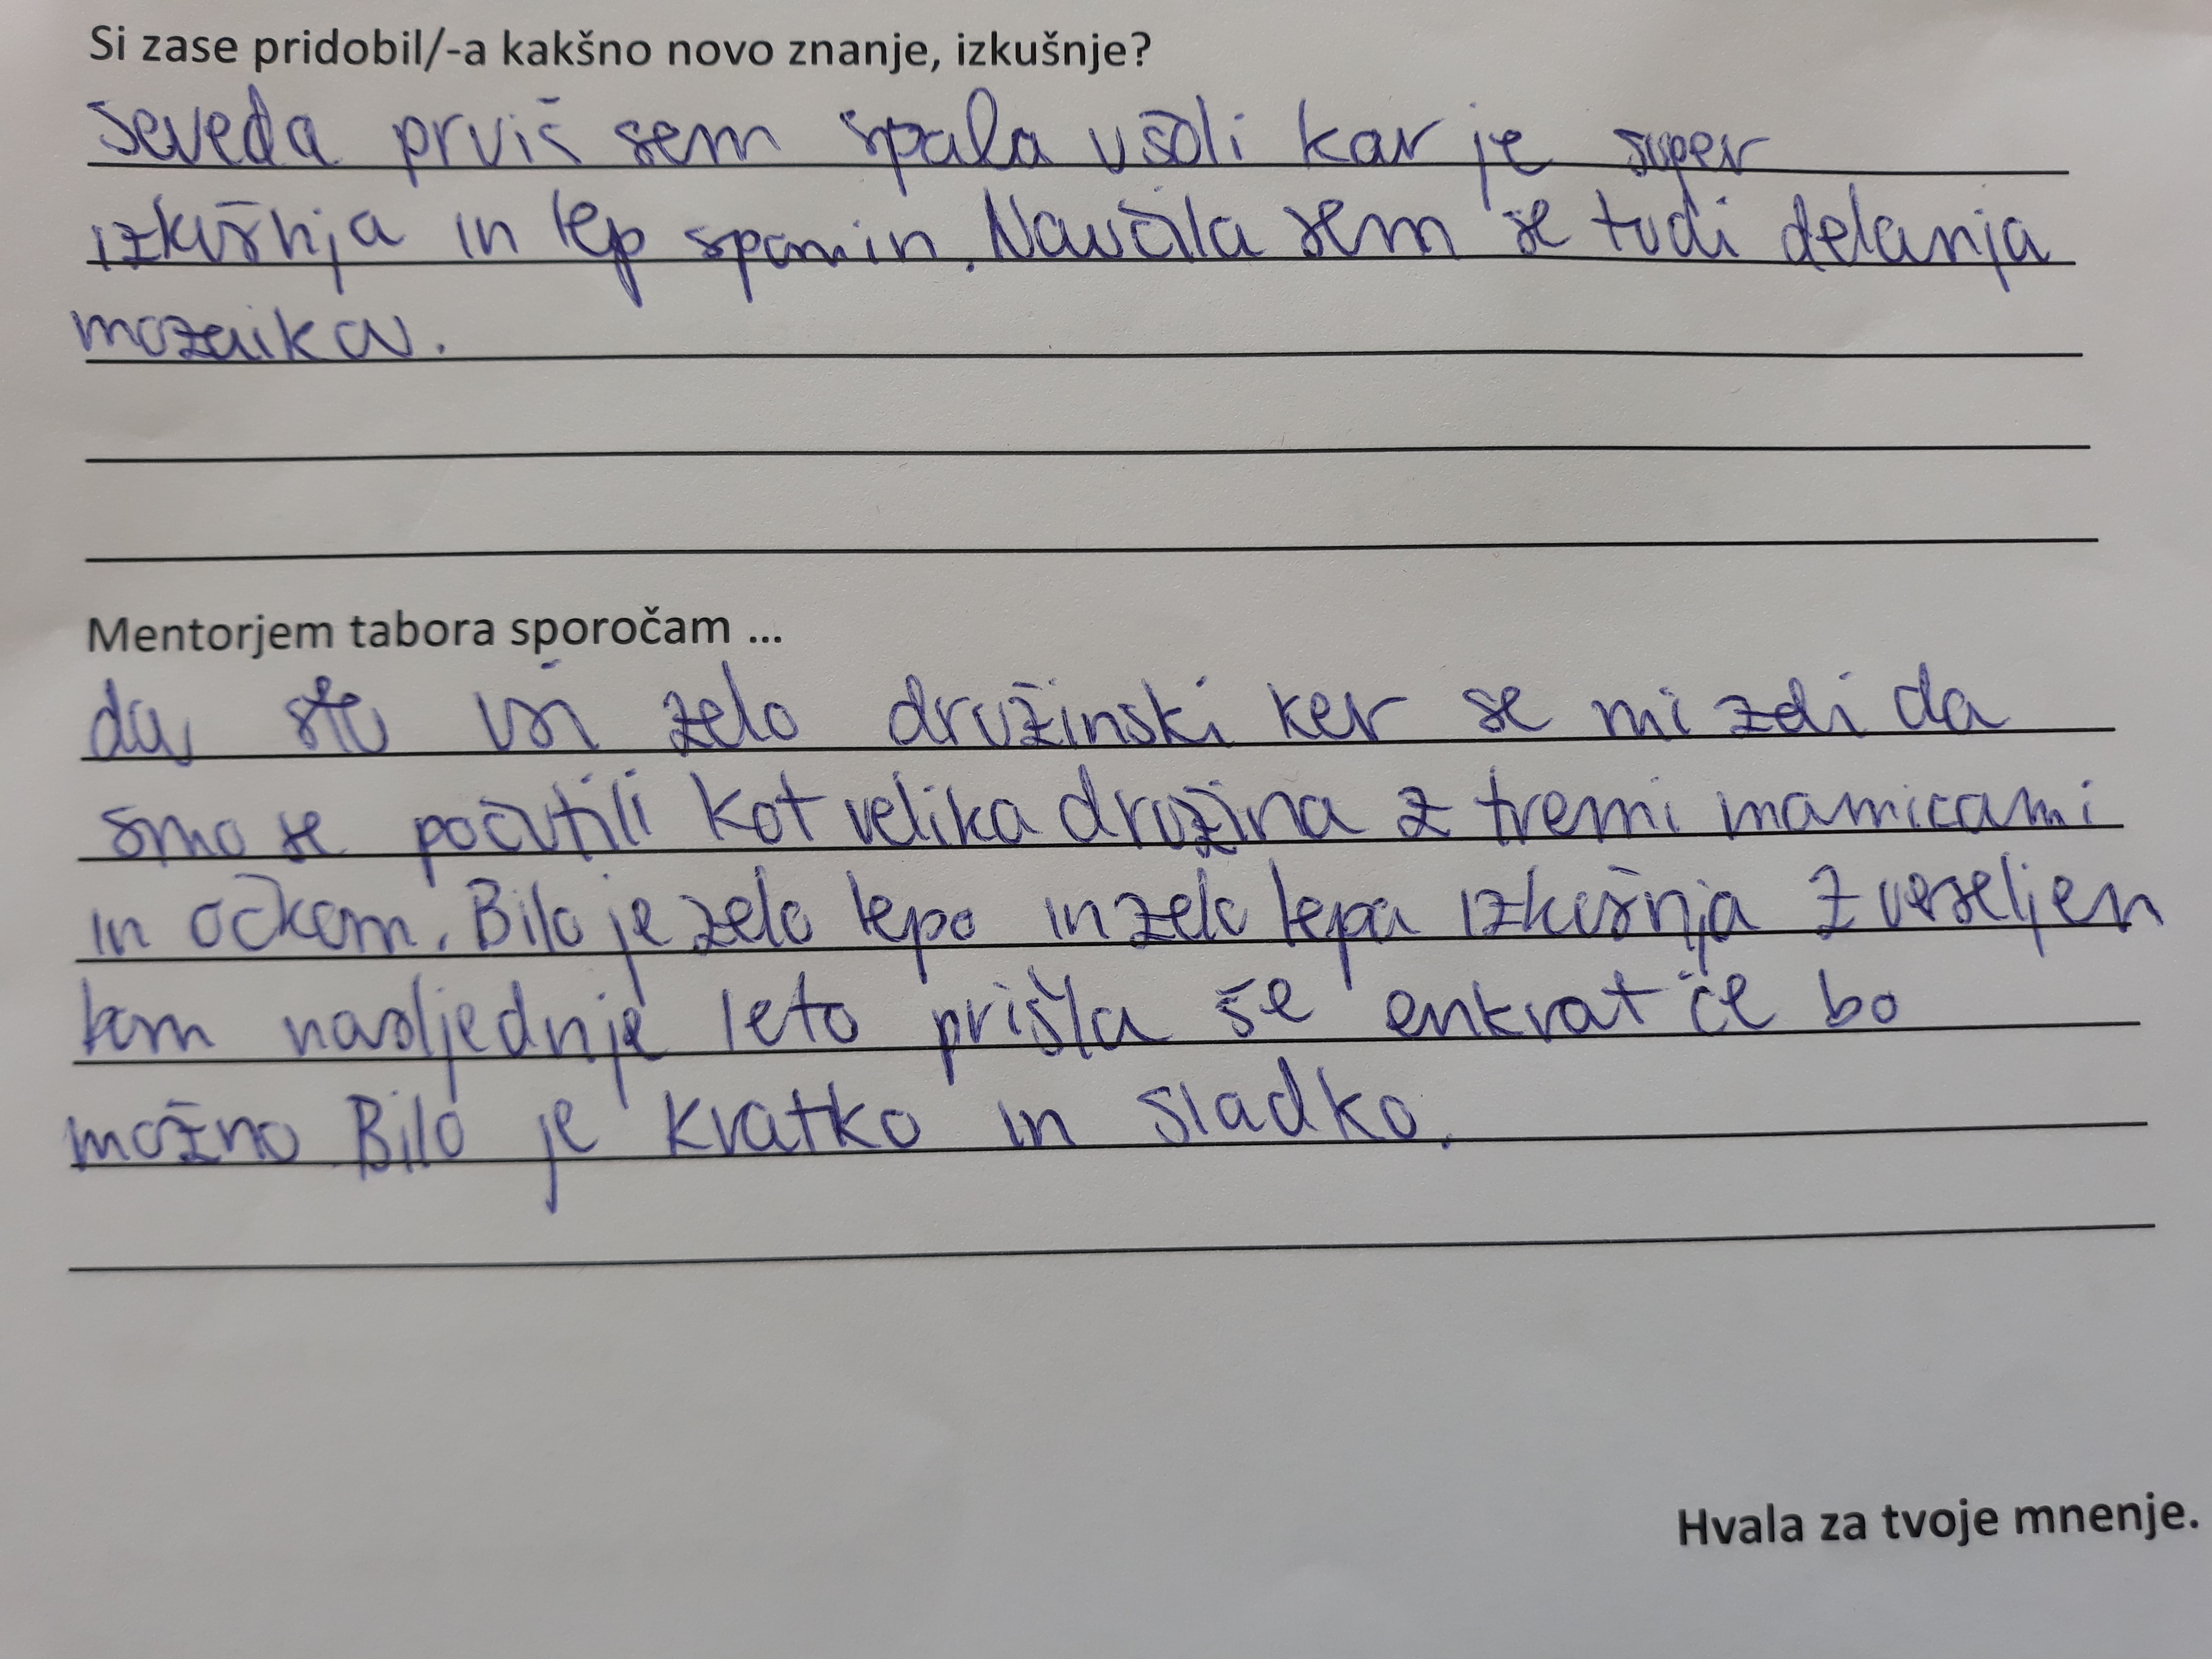 Si zase pridobil/-a kakšno novo znanje, izkušnje?
Seveda prvič sem spala všoli kar je super
izkušnja in lep spomin. Naučila sem se tudi delanja
mozaikov.
Mentorjem tabora sporočam ...
da ste vsi zelo družinski ker se mi zdi da
smo se počutili kot velika družina z tremi mamicami
in očkom. Bilo je zelo lepo in zelo lepa izkušnja z veseljem
bom nasljednje leto prišla še enkrat če bo
možno Bilo je kratko in sladko.
Hvala za tvoje mnenje.